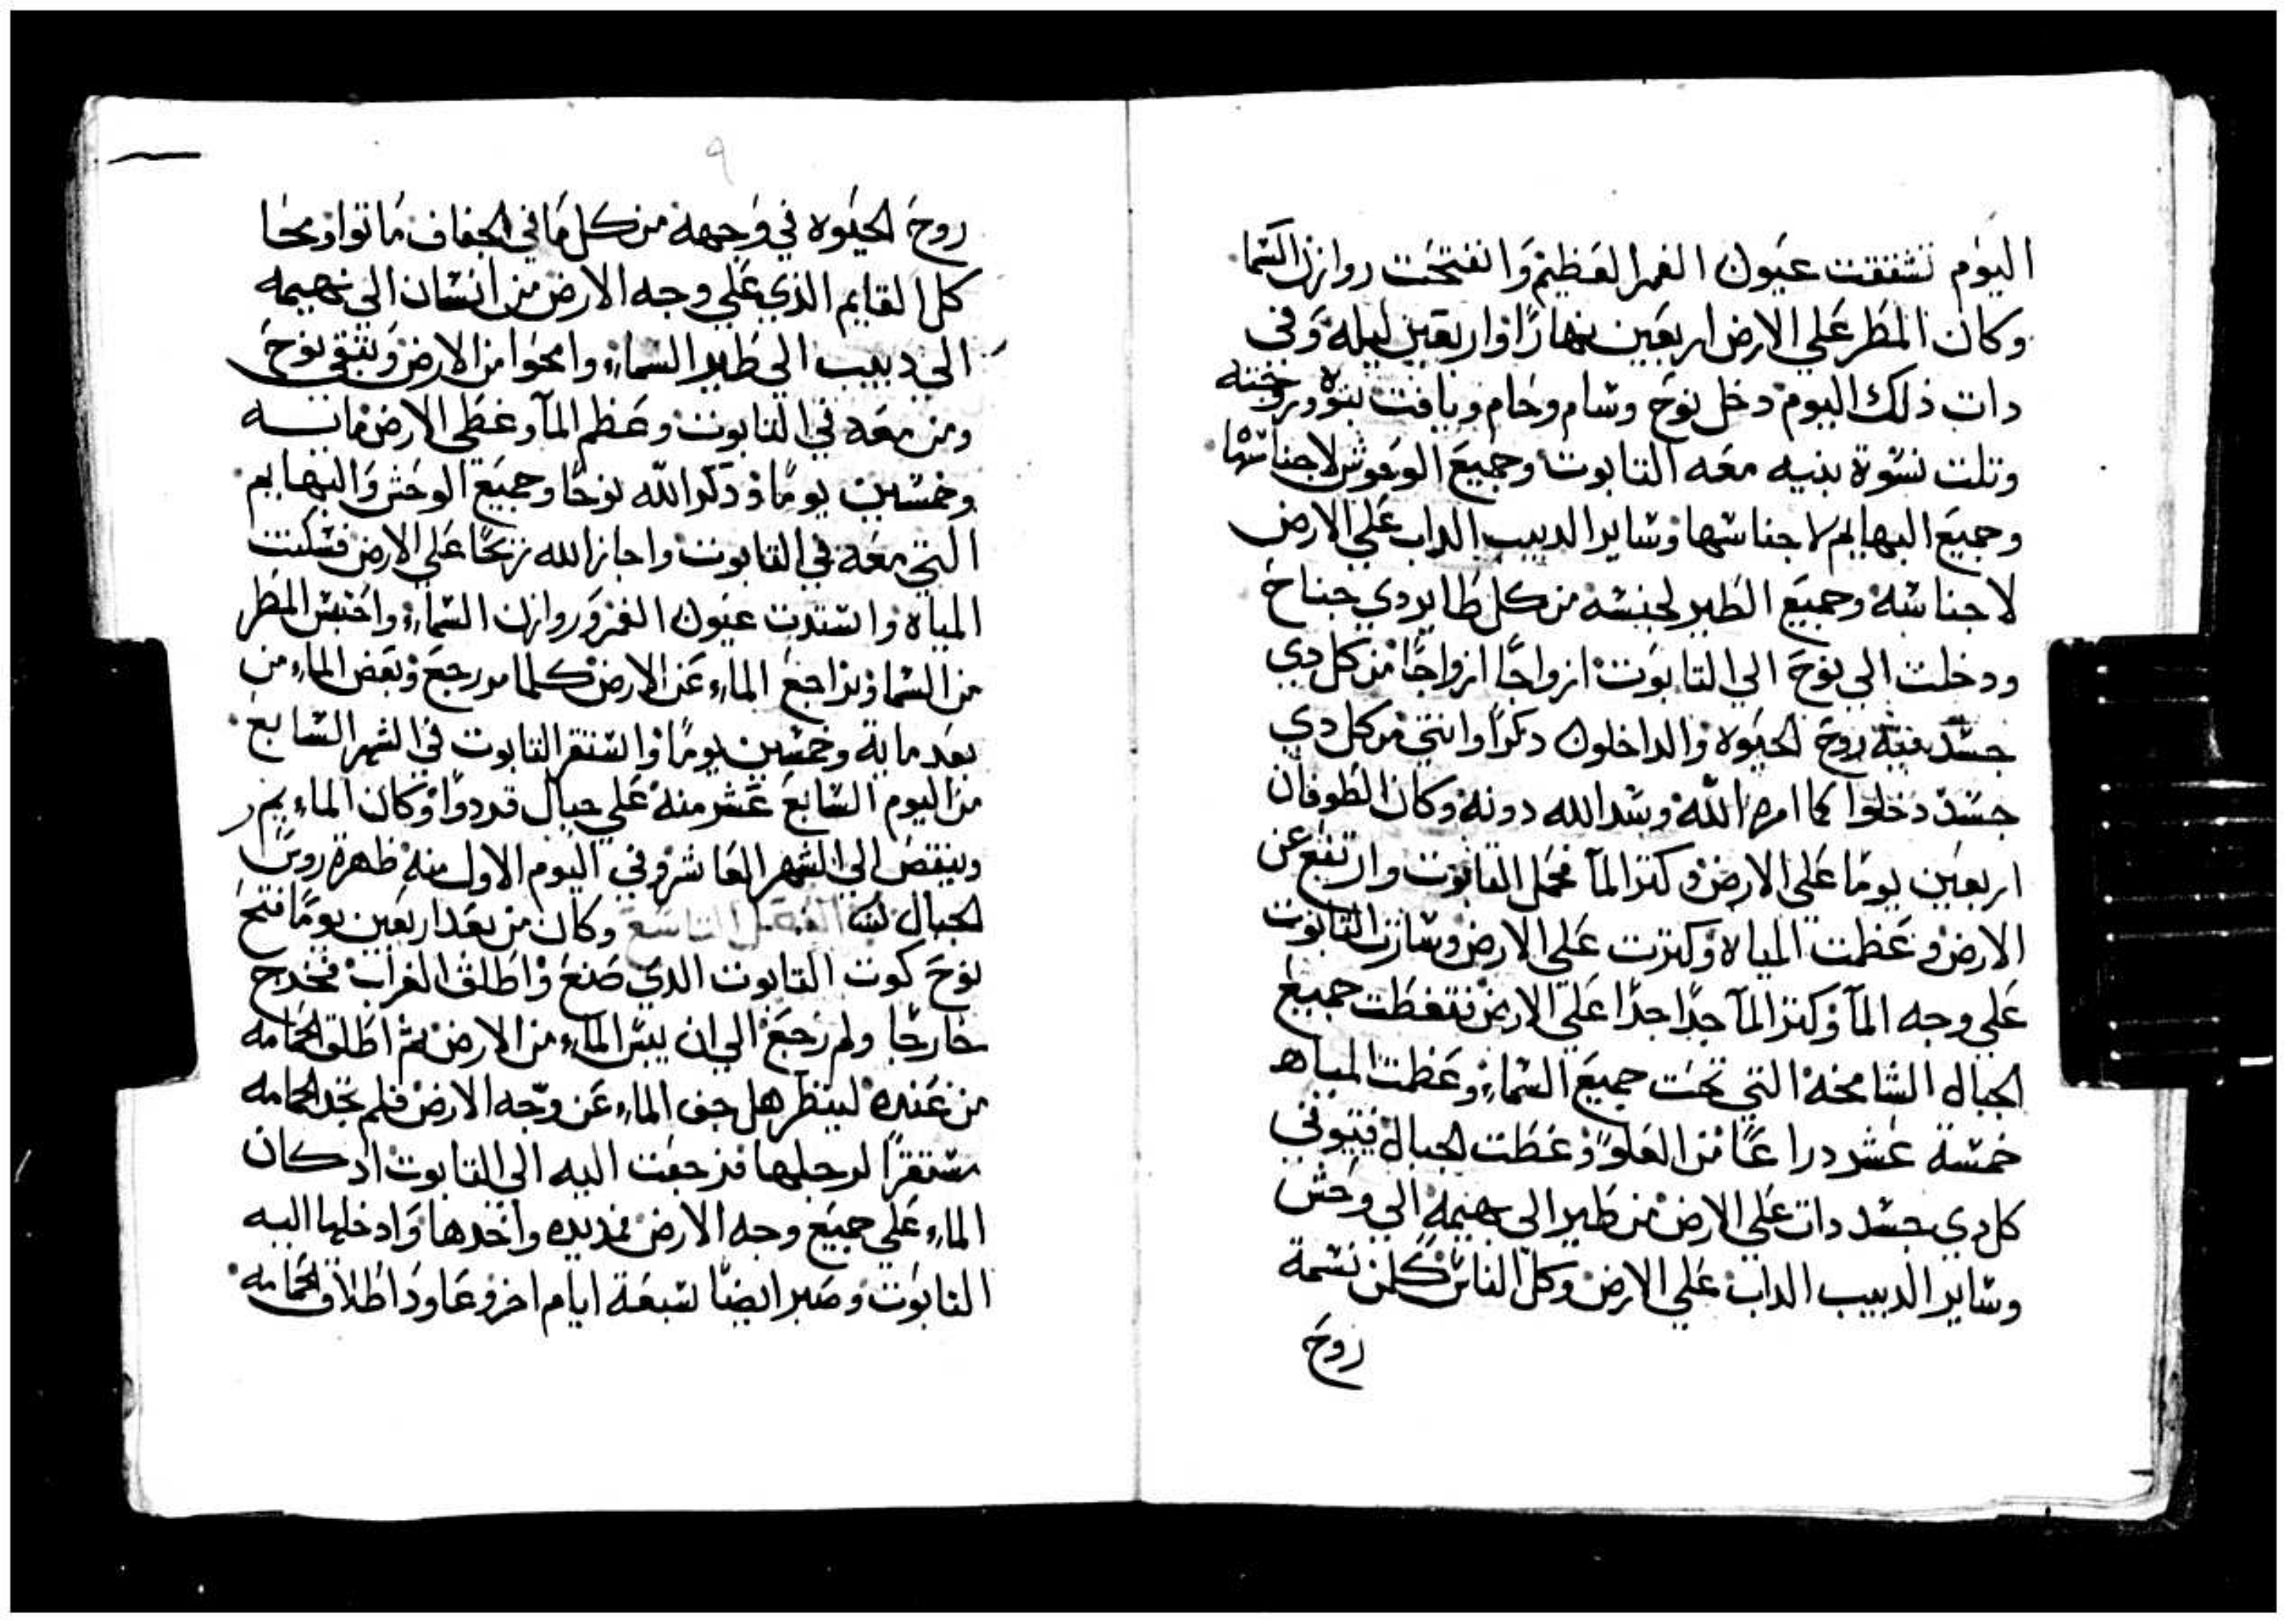 اليوم تشققت عيون الغمر العظيم وانفتحت روازن السما
وكان المطر علي الارض اربعين نهارًا واربعين ليلة وفي
دات ذلك اليوم دخل نوح وسام وحام ويافت بنوه وزوجته
وتلت نسوة بنيه معه التابوت وجميع الوحوش لاجناسها
وجميع البهايم لاجناسها وساير الدبيب الداب علي الارض
لاجناسه وجميع الطير لجنسه من كل طاير دي جناح
ودخلت الي نوح الي التابوت ازواجًا ازواجًا من كل دي
جسد فيه روح الحيوة والداخلون دكرًا وانتي من كل دي
جسد دخلوا كما امره الله وسد الله دونه وكان الطوفان
اربعين يومًا علي الارض وكتر المآ فحمل التابوت وارتفع عن
الارض وعظمت المياه وكترت علي الارض وسارت التابوت
علي وجه المآ وكتر المآ جدًا جدًا علي الارض فتغطت جميع
الجبال الشامخة التي تحت جميع السماء وعظمت المياه
خمسة عشر دراعًا من العلو وغطت الجبال فتوفي
كل دي جسد داب علي الارض من طير الي بهيمة الي وحش
وساير الدبيب الداب علي الارض وكل الناس كلمن نسمة
روح
٩
روح الحيوة في وجهه من كل ما في الجفاف ماتوا ومحا
كل القايم الذي علي وجه الارض من انسان الي بهيمه
الي دبيب الي طير السماء وامحوا من الارض وتبقي نوح
ومن معه في التابوت وعظم المآ وغطي الارض مايه
وخمسين يومًا ودكر الله نوحًا وجميع الوحش والبهايم
التي معه في التابوت واجاز الله ريحًا علي الارض فسكنت
المياه واستدت عيون الغمر وروازن السماء واحتبس المطر
من السما وتراجع الماء عن الارض كلما مر رجع ونقص الماء من
بعد ماية وخمسين يومًا واستقر التابوت في الشهر السابع
من اليوم السابع عشر منه علي جبال قردوا وكان الماء يمر
وينقص الي الشهر العاشر وفي اليوم الاول منه ظهرة روس
الجبال الفصل التاسع وكان من بعد اربعين يومًا فتح
نوح كوت التابوت الدي صنع واطلق الغراب فخرج
خارجًا ولم رجع الي ان يبس الماء من الارض ثم اطلق الحمامه
من عنده لينظر هل جف الماء عن وجه الارض فلم تجد الحمامه
مستقرًا لرجلها فرجعت اليه الي التابوت اد كان
الماء علي جميع وجه الارض فمد يده واخدها وادخلها اليه
التابوت وصبر ايضًا سبعة ايام اخر وعاود اطلاق الحمامه